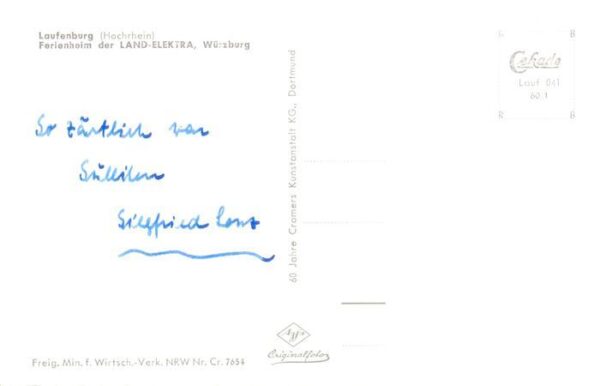 Laufenburg (Hochrhein)
Ferienheim der LAND-ELEKTRA, Würzburg
So zärtlich war
Suleiken
Siegfried Lenz
60 Jahre Cramers Kunstanstalt KG., Dortmund
Cekade
Lauf 041
60/1
R B
R B
Agfa
Originalfoto
Freig. Min. f. Wirtsch.-Verk. NRW Nr. Cr. 7654